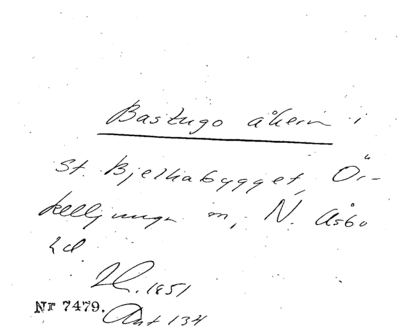 Bastugo åkern i
St. Bjelkabygget, Ör-
kelljunga sn, N. Åsbo
hd.
1851
Nr 7479. Ant 134